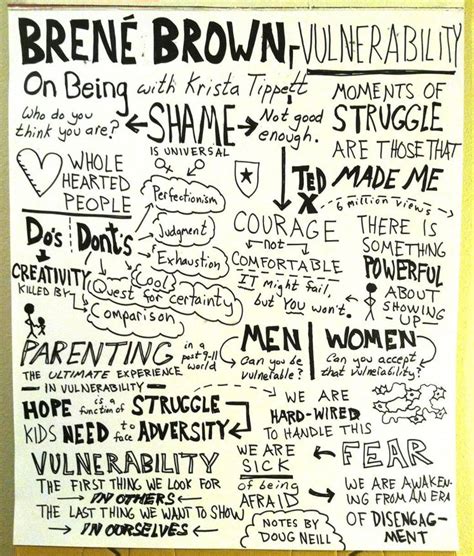 BRENÉ BROWN, VULNERABILITY
On Being with Krista Tippett
Who do you
think you are?
SHAME
IS UNIVERSAL
Not good
enough.
MOMENTS OF
STRUGGLE
ARE THOSE THAT
MADE ME
WHOLE
HEARTED
PEOPLE
Perfectionism
Judgment
Exhaustion
Cool
Quest for certainty
Comparison
TED
X
6 million views
Do's
Dont's
CREATIVITY
KILLED BY
COURAGE
not
COMFORTABLE
IT Might fail,
but YOU won't.
THERE IS
SOMETHING
POWERFUL
ABOUT
SHOWING
UP
PARENTING
in a
post 9-11
world
THE ULTIMATE EXPERIENCE
IN VULNERABILITY
MEN
Can you be
vulnerable?
WOMEN
Can you accept
that vulnerability?
HOPE is a function of STRUGGLE
KIDS NEED to face ADVERSITY
WE ARE
HARD-WIRED
TO HANDLE THIS
VULNERABILITY
THE FIRST THING WE LOOK FOR
IN OTHERS
THE LAST THING WE WANT TO SHOW
IN OURSELVES
WE ARE
SICK
of being
AFRAID
FEAR
WE ARE AWAKEN-
ING FROM AN ERA
OF DISENGAG
MENT
NOTES BY
DOUG NEILL